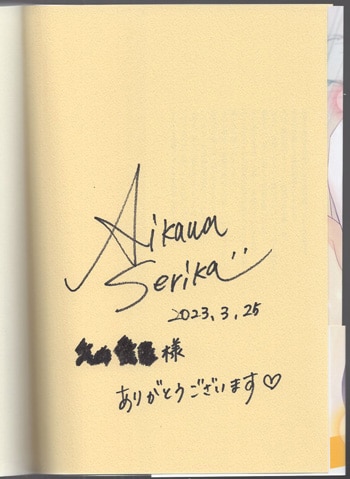 Aikawa
Serika
2023.3.25
様
ありがとうございます♡